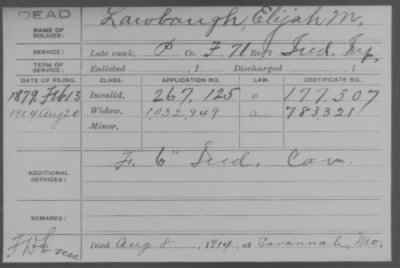 DEAD
NAME OF SOLDIER: Lawbaugh, Elijah M.
SERVICE: Late rank, P Co. F. 71 Reg't Ind. Inf.
TERM OF SERVICE: Enlisted , 1 Discharged , 1
DATE OF FILING. CLASS. APPLICATION NO. LAW. CERTIFICATE NO.
1879 Feb 13 Invalid, 267,125 177,307
1914 Aug 20 Widow, 1,032,949 a 783,321
Minor,
ADDITIONAL SERVICES: F. 6" Ind. Cav.
REMARKS:
Died Aug 8, 1914, at Savannah, Mo.